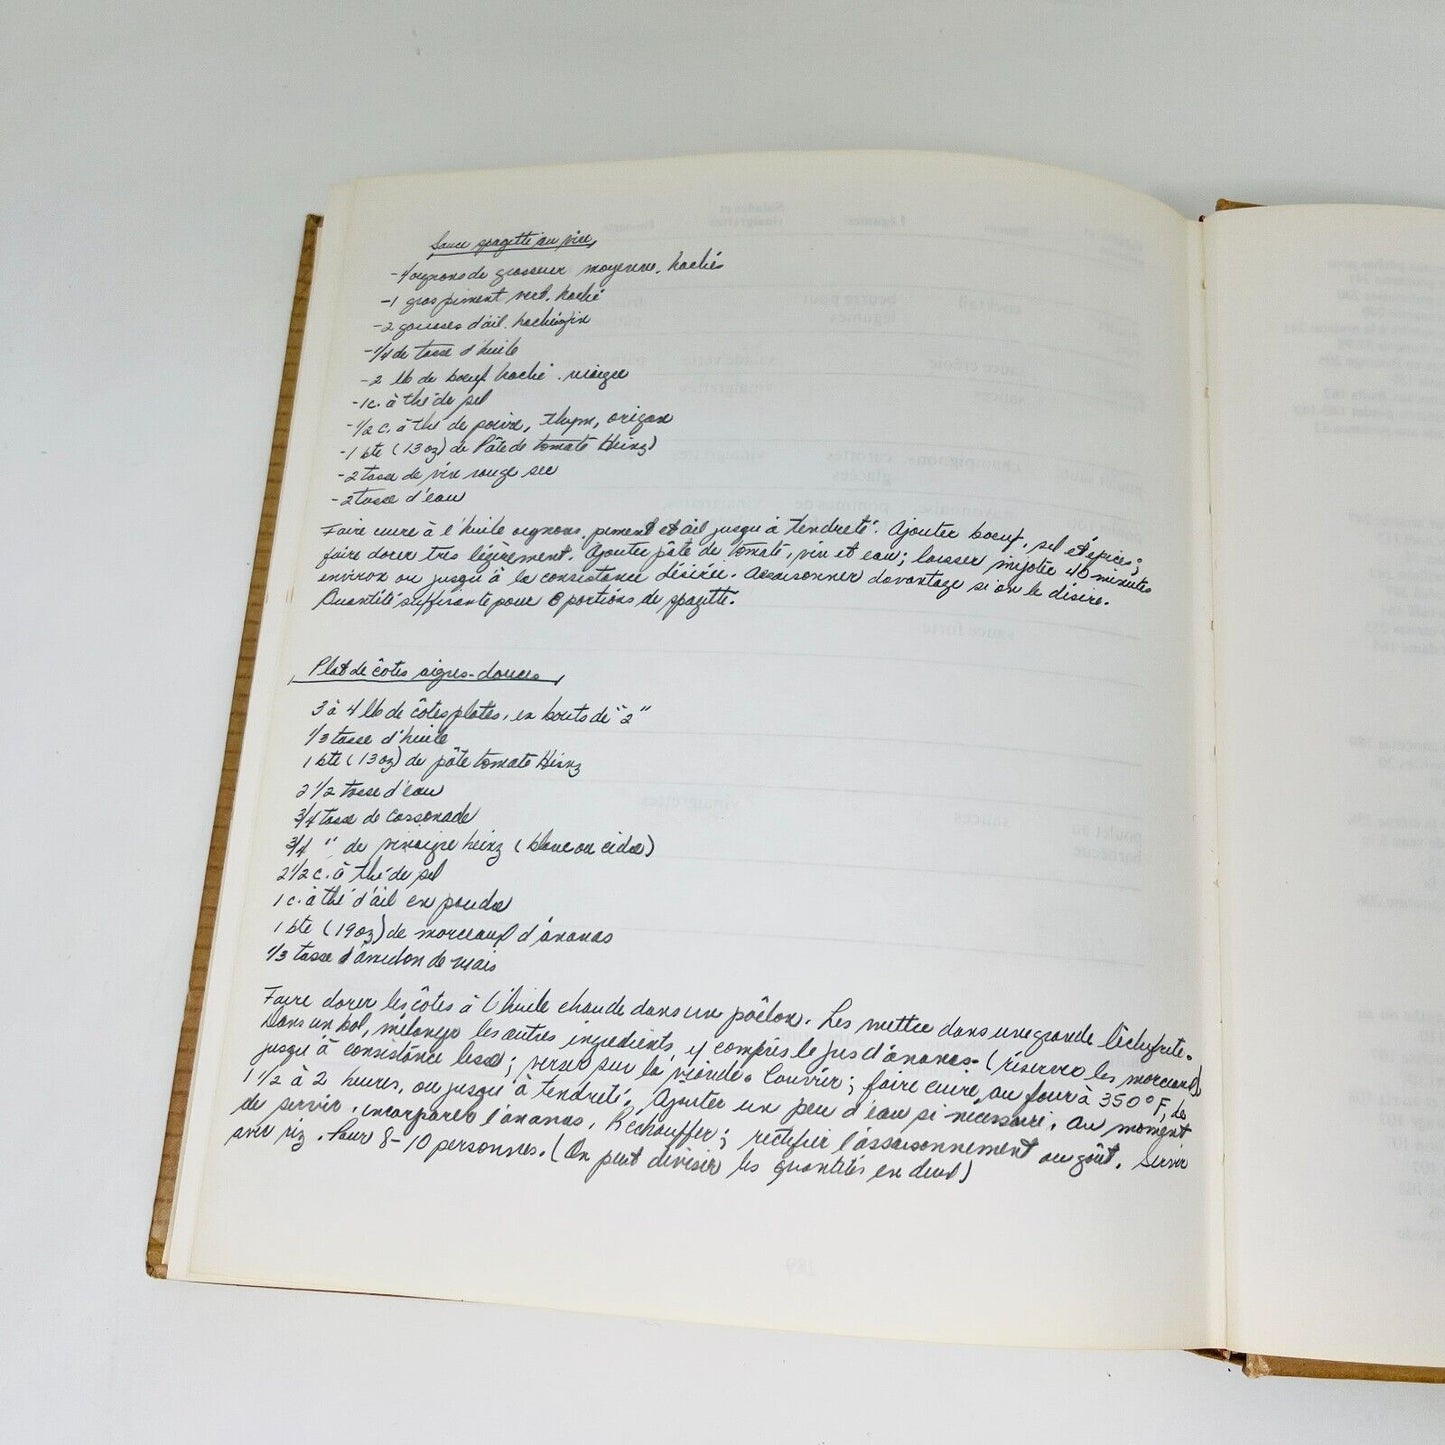 Sauce spagetti au vin
-4 oignons de grosseur moyenne, hachés
-1 gros piment vert, haché
-2 gousses d'ail, haché fin
-1/4 de tasse d'huile
-2 lb de boeuf haché, maigre
-1 c. à thé de sel
-1/2 c. à thé de poivre, thym, origan
-1 bte (13 oz) de Pâte de tomate Heinz)
-2 tasse de vin rouge sec
-2 tasse d'eau
Faire cuire à l'huile oignons, piment et ail jusqu'à tendreté. Ajouter boeuf, sel et épices;
faire dorer très légèrement. Ajouter pâte de tomate, vin et eau; laisser mijoter 40 minutes
environ ou jusqu'à la consistance désirée. Assaisonner davantage si on le désire.
Quantité suffisante pour 8 portions de spagetti.
Plat de côtes aigres-douces
3 à 4 lb de côtes plates, en bouts de "2"
1/3 tasse d'huile
1 bte (13 oz) de pâte tomate Heinz
2 1/2 tasse d'eau
3/4 tasse de cassonade
3/4 " de vinaigre heinz (blanc ou cidre)
2 1/2 c. à thé de sel
1 c. à thé d'ail en poudre
1 bte (19 oz) de morceaux d'ananas
1/3 tasse d'amidon de maïs
Faire dorer les côtes à l'huile chaude dans un poêlon. Les mettre dans une grande lèchefrite.
Dans un bol, mélanger les autres ingrédients, y compris le jus d'ananas. (réserver les morceaux)
jusqu'à consistance lisse; verser sur la viande. Couvrir; faire cuire, au four à 350° F, de
1 1/2 à 2 heures, ou jusqu'à tendreté. Ajouter un peu d'eau si nécessaire. Au moment
de servir, incorporer l'ananas. Réchauffer; rectifier l'assaisonnement au goût. Servir
avec riz. Pour 8-10 personnes. (On peut diviser les quantités en deux)